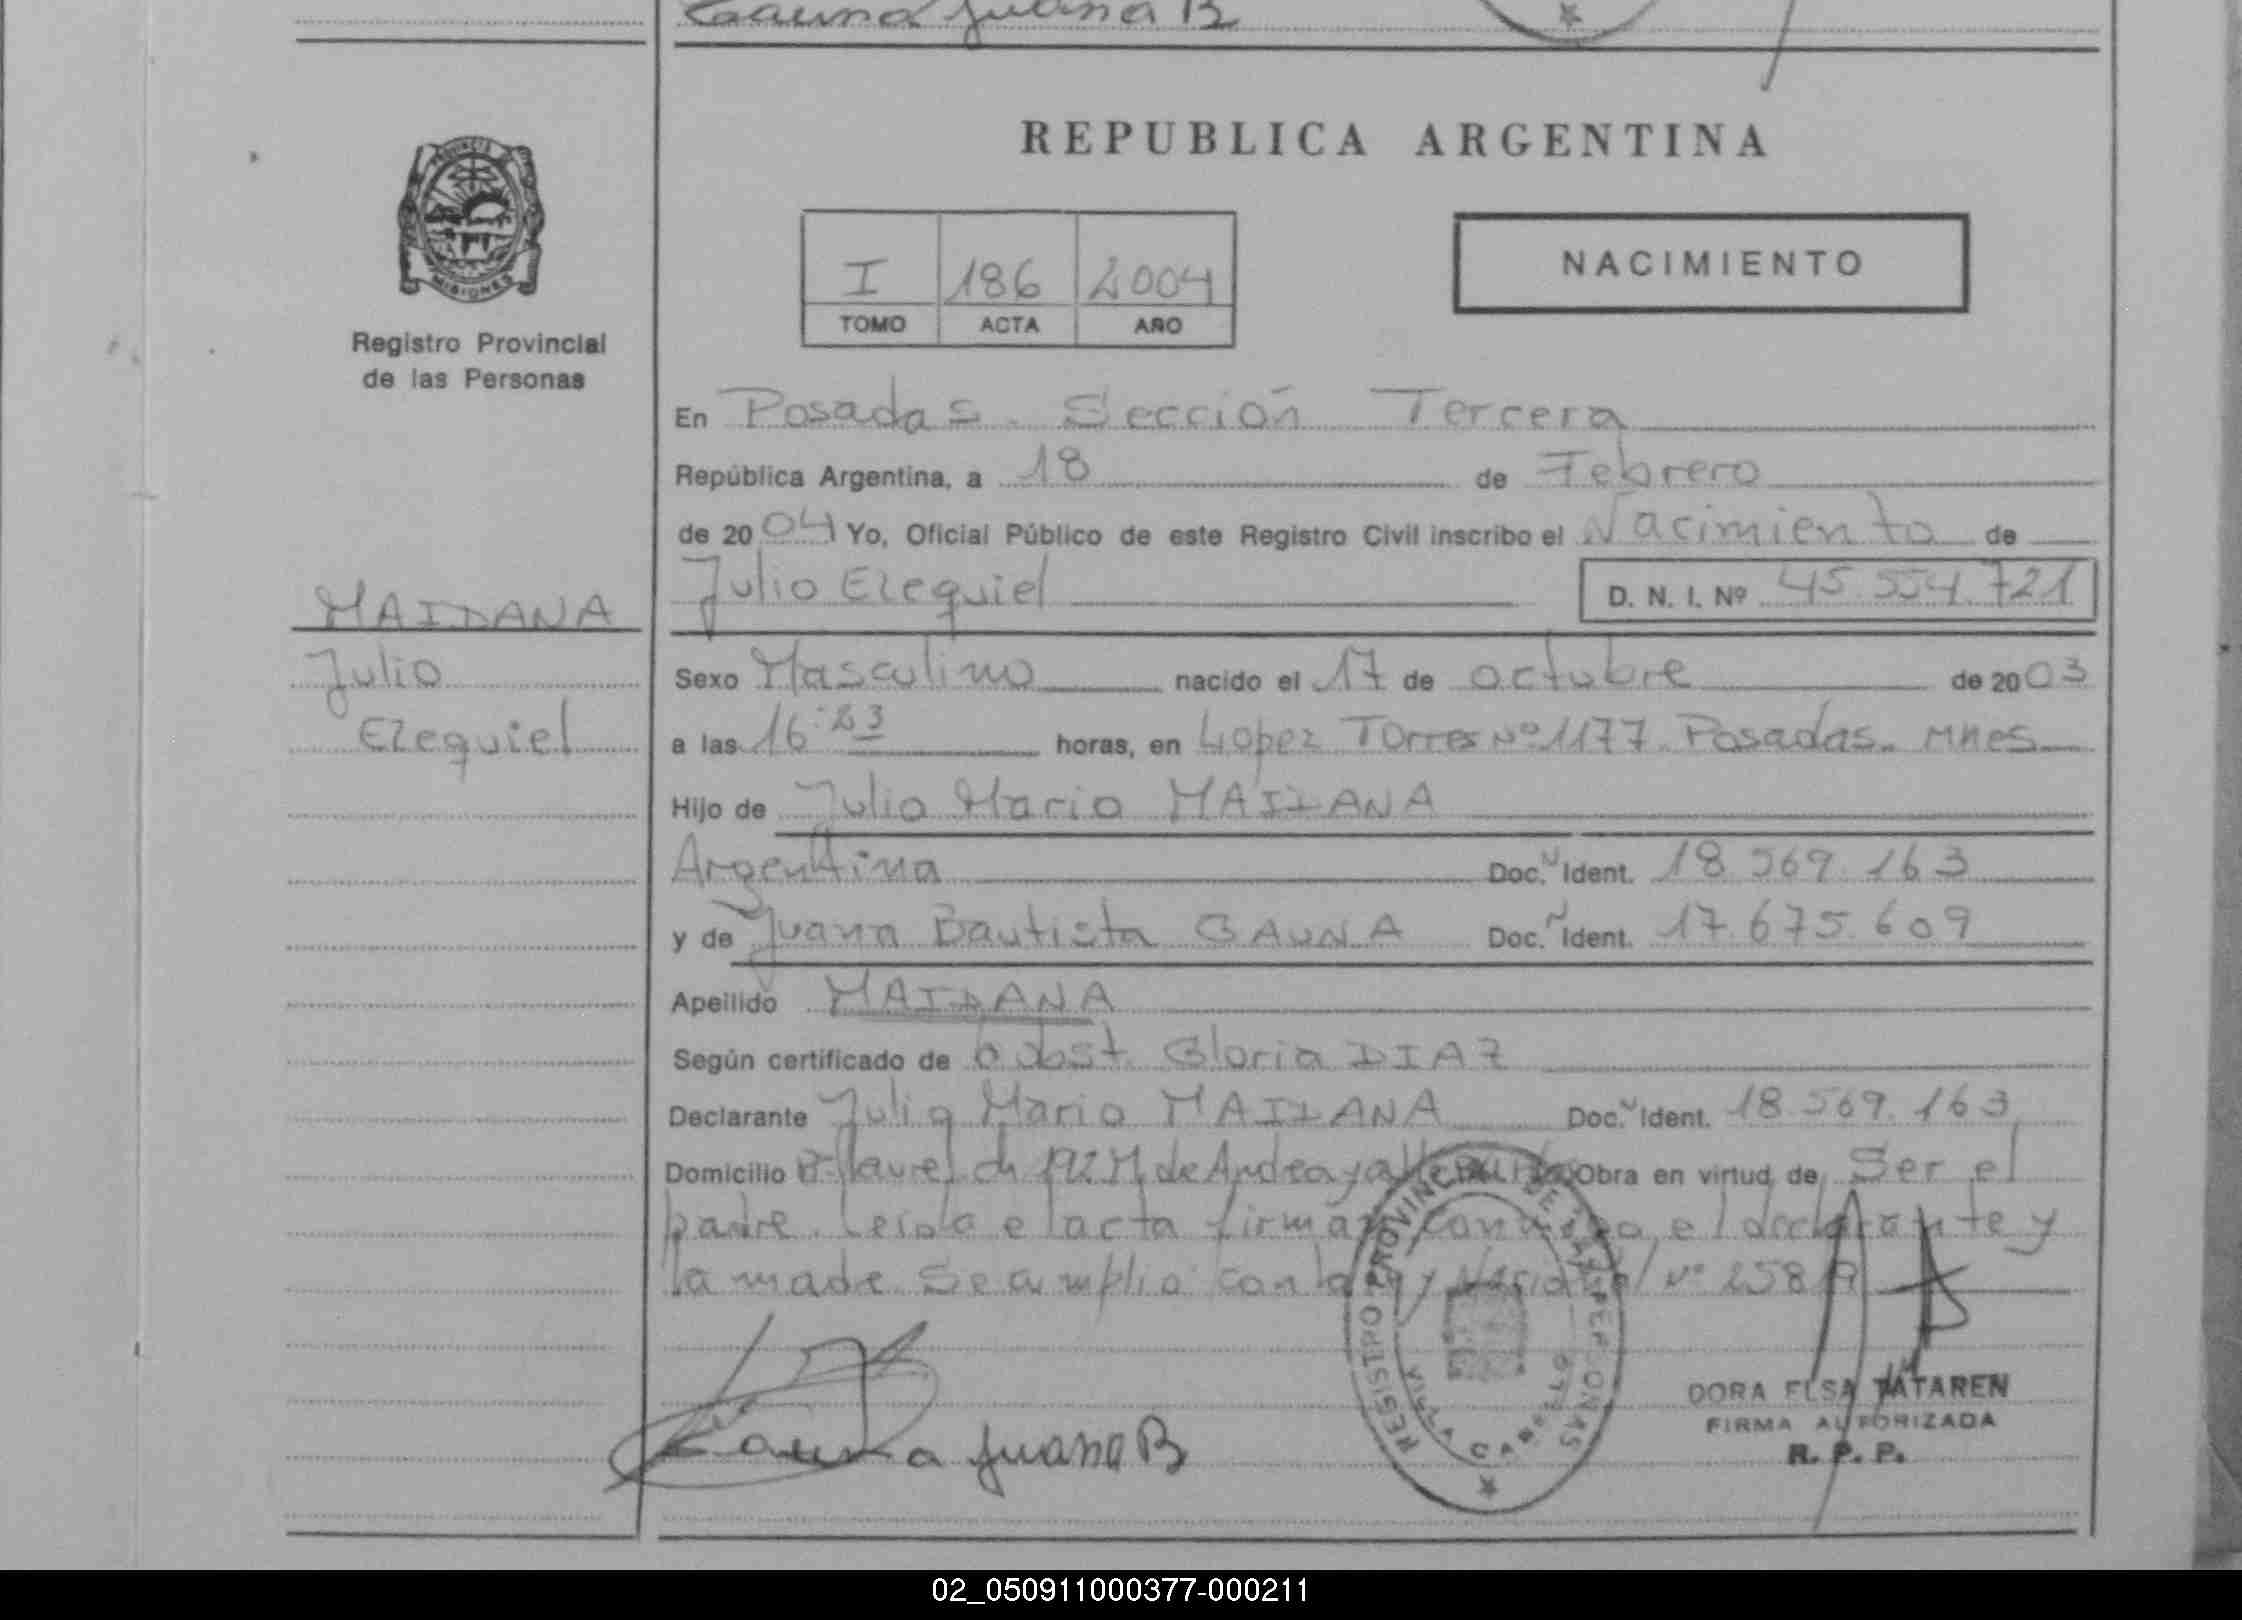 Gauna Juana B
PROVINCIA DE
MISIONES
Registro Provincial
de las Personas
MAIDANA
Julio
Ezequiel
REPUBLICA ARGENTINA
I 186 2004
TOMO ACTA AÑO
NACIMIENTO
En Posadas - Sección Tercera
República Argentina, a 18 de Febrero
de 2004 Yo, Oficial Público de este Registro Civil inscribo el Nacimiento de
Julio Ezequiel D. N. I. Nº 45.554.721
Sexo Masculino nacido el 17 de octubre de 2003
a las 16:23 horas, en Lopez Torres Nº 1177 Posadas. Mnes
Hijo de Julio Mario MAIDANA
Argentina Doc. Ident. 18.569.163
y de Juana Bautista GAUNA Doc. Ident. 17.675.609
Apellido MAIDANA
Según certificado de obst. Gloria DIAZ
Declarante Julio Mario MAIDANA Doc. Ident. 18.569.163
Domicilio de Andrea y Obra en virtud de Ser el
padre. Leida el acta firman conmigo el declarante y
la madre Se amplio con la Ley Nacional Nº 25819
Gauna Juana B
REGISTRO PROVINCIAL DE LAS PERSONAS
VILLA CABELLO
DORA ELSA TATAREN
FIRMA AUTORIZADA
R. P. P.
02_050911000377-000211